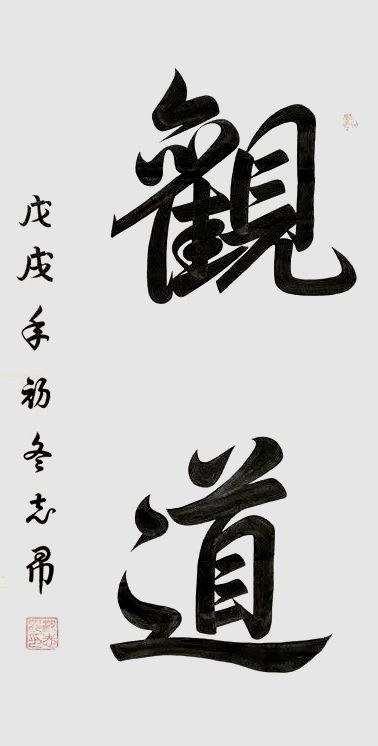 觀道
戊戌年初冬志